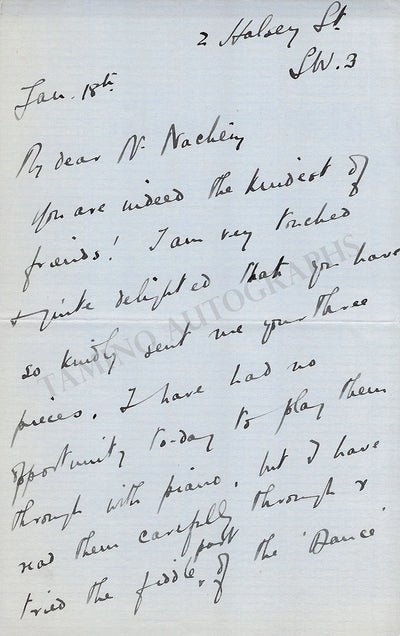 2 Halsey St
S.W.3
Jan. 18th
My dear Mr. Nachèz
You are indeed the kindest of
friends! I am very touched
& quite delighted that you have
so kindly sent me your three
pieces. I have had no
opportunity to-day to play them
through with piano, but I have
read them carefully through &
tried the fiddle part of the 'Dance'
TAMINO AUTOGRAPHS